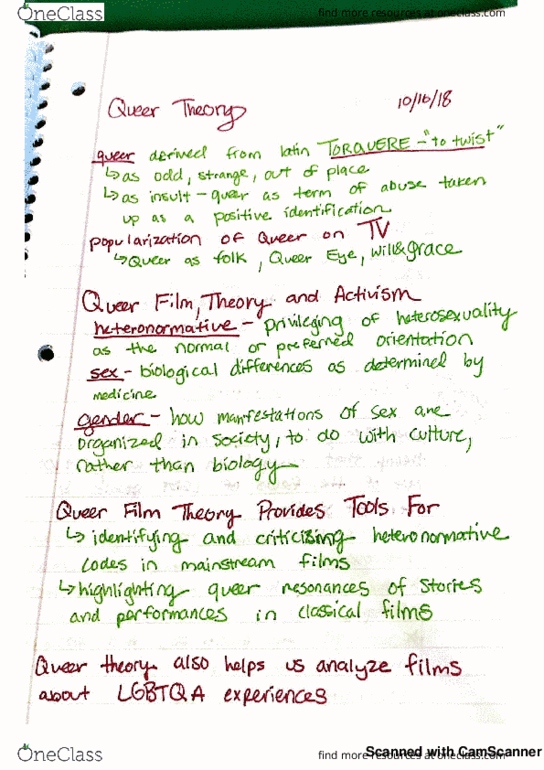 OneClass
find more resources at oneclass.com
Queer Theory
10/16/18
queer derived from latin TORQUERE - "to twist"
↳ as odd, strange, out of place
↳ as insult - queer as term of abuse taken
up as a positive identification
popularization of Queer on TV
↳ Queer as folk, Queer Eye, will & grace
Queer Film, Theory and Activism
heteronormative - privileging of heterosexuality
as the normal or preferred orientation
sex - biological differences as determined by
medicine
gender - how manfestations of sex are
organized in society, to do with culture,
rather than biology
Queer Film Theory Provides Tools For
↳ identifying and criticising heteronormative
codes in mainstream films
↳ highlighting queer resonances of stories
and performances in classical films
Queer theory also helps us analyze films
about LGBTQA experiences
OneClass
find more resources at oneclass.com
Scanned with CamScanner